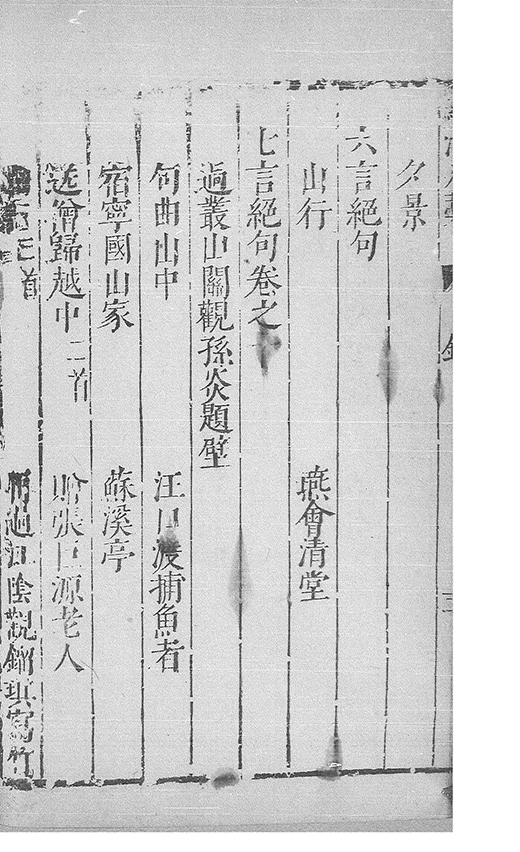 夕景
六言絕句
山行 燕會清堂
七言絕句卷之
過叢山關觀孫炎題壁
句曲山中 汪口渡捕魚者
宿寧國山家 蘇溪亭
送曾歸越中二首 贈張巨源老人
三首 過江陰觀鄒填寫竹